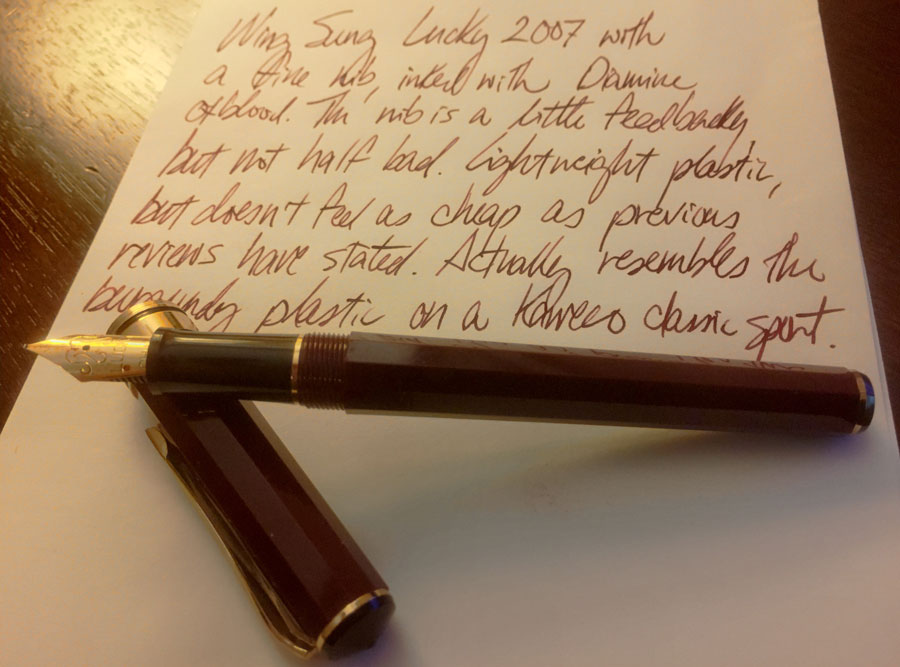 Wing Sung Lucky 2007 with
a fine nib, inked with Diamine
Oxblood. The nib is a little feedbacky
but not half bad. Lightweight plastic,
but doesn't feel as cheap as previous
reviews have stated. Actually resembles the
burgundy plastic on a Kaweco classic sport.